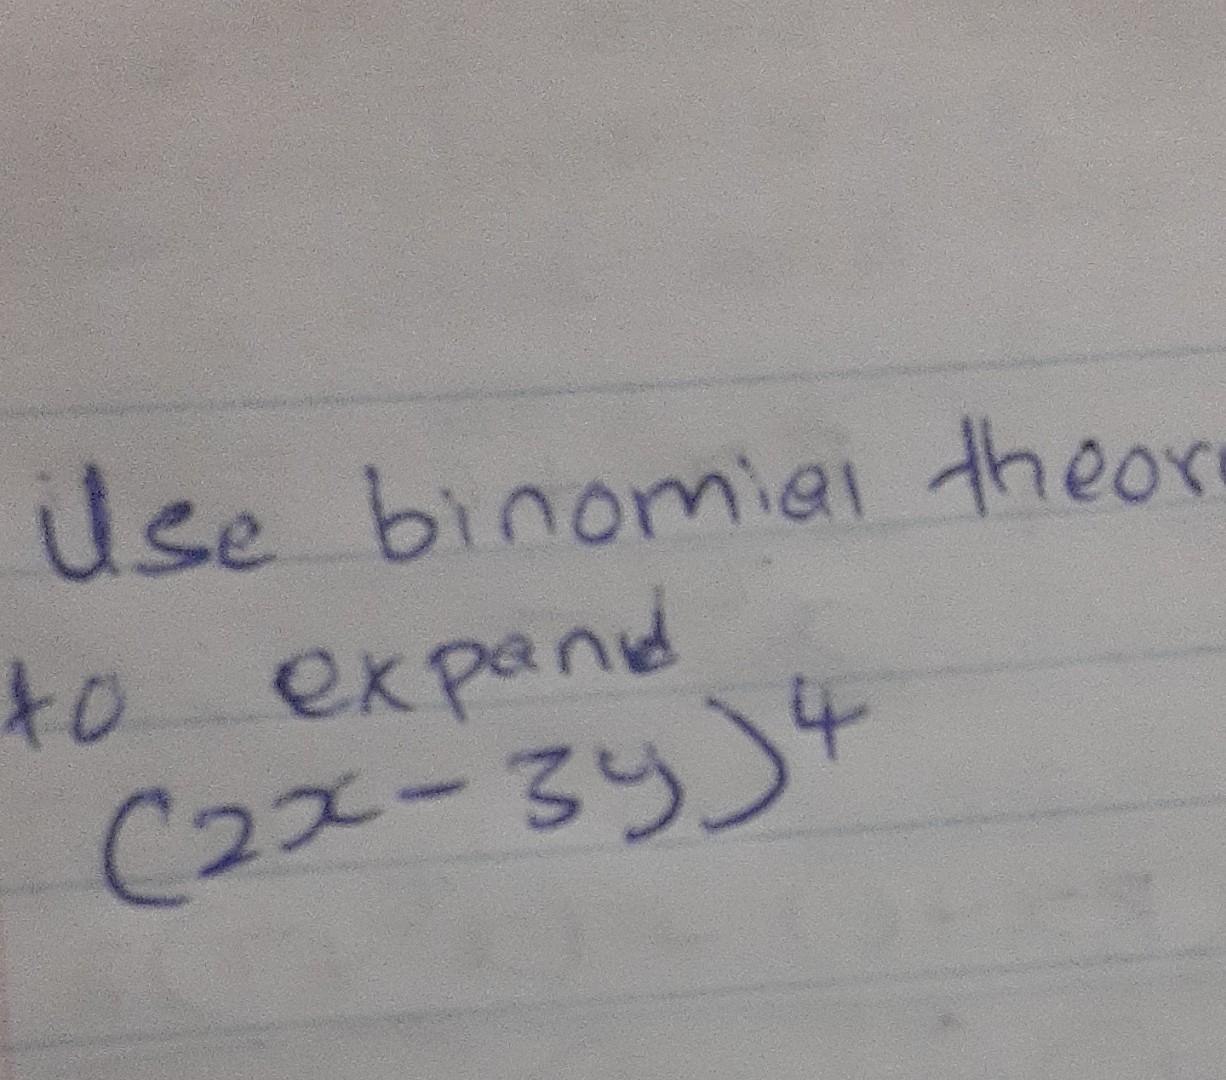 Use binomial theor
to expand
(2x - 3y)⁴